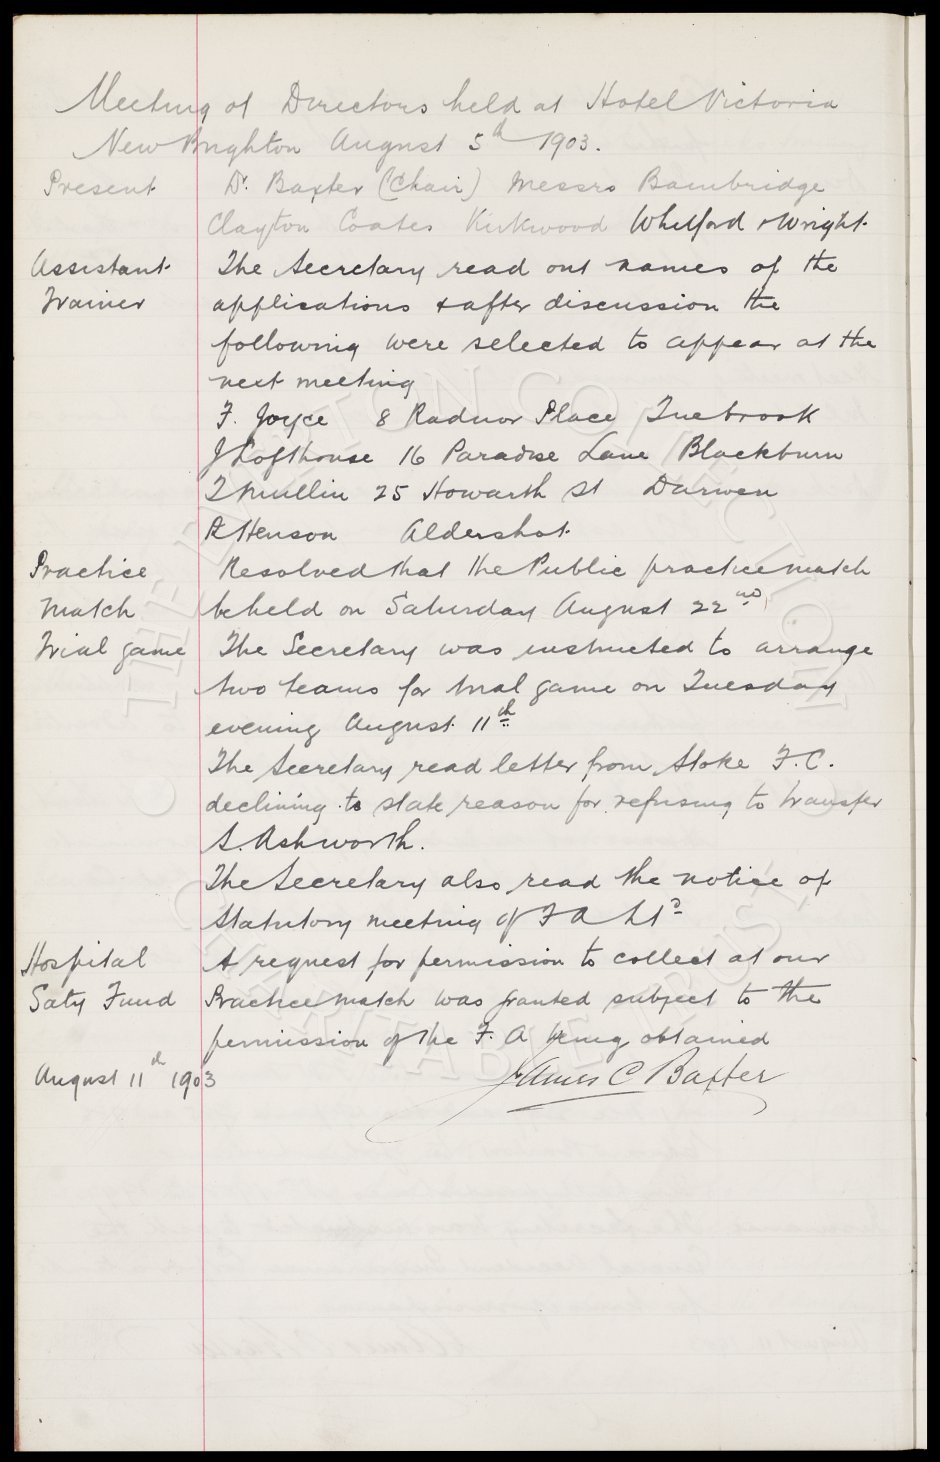 Meeting of Directors held at Hotel Victoria
New Brighton August 5th 1903.
Present Dr. Baxter (Chair) Messrs Bainbridge
Clayton Coates Kirkwood Whitford & Wright.
Assistant The Secretary read out names of the
Trainer applications & after discussion the
following were selected to appear at the
next meeting
F. Joyce 8 Radnor Place Tuebrook
J Lofthouse 16 Paradise Lane Blackburn
T Mullin 25 Howarth St Darwen
R Henson Aldershot.
Practice Resolved that the Public practice match
Match be held on Saturday August 22nd
Trial game The Secretary was instructed to arrange
two teams for trial game on Tuesday
evening August 11th
The Secretary read letter from Stoke F.C.
declining to state reason for refusing to transfer
S. Ashworth.
The Secretary also read the notice of
Statutory meeting of F A Ltd
Hospital A request for permission to collect at our
Saty Fund Practice match was granted subject to the
permission of the F. A being obtained
August 11th 1903 James C Baxter
THE EVERTON COLLECTION
CHARITABLE TRUST